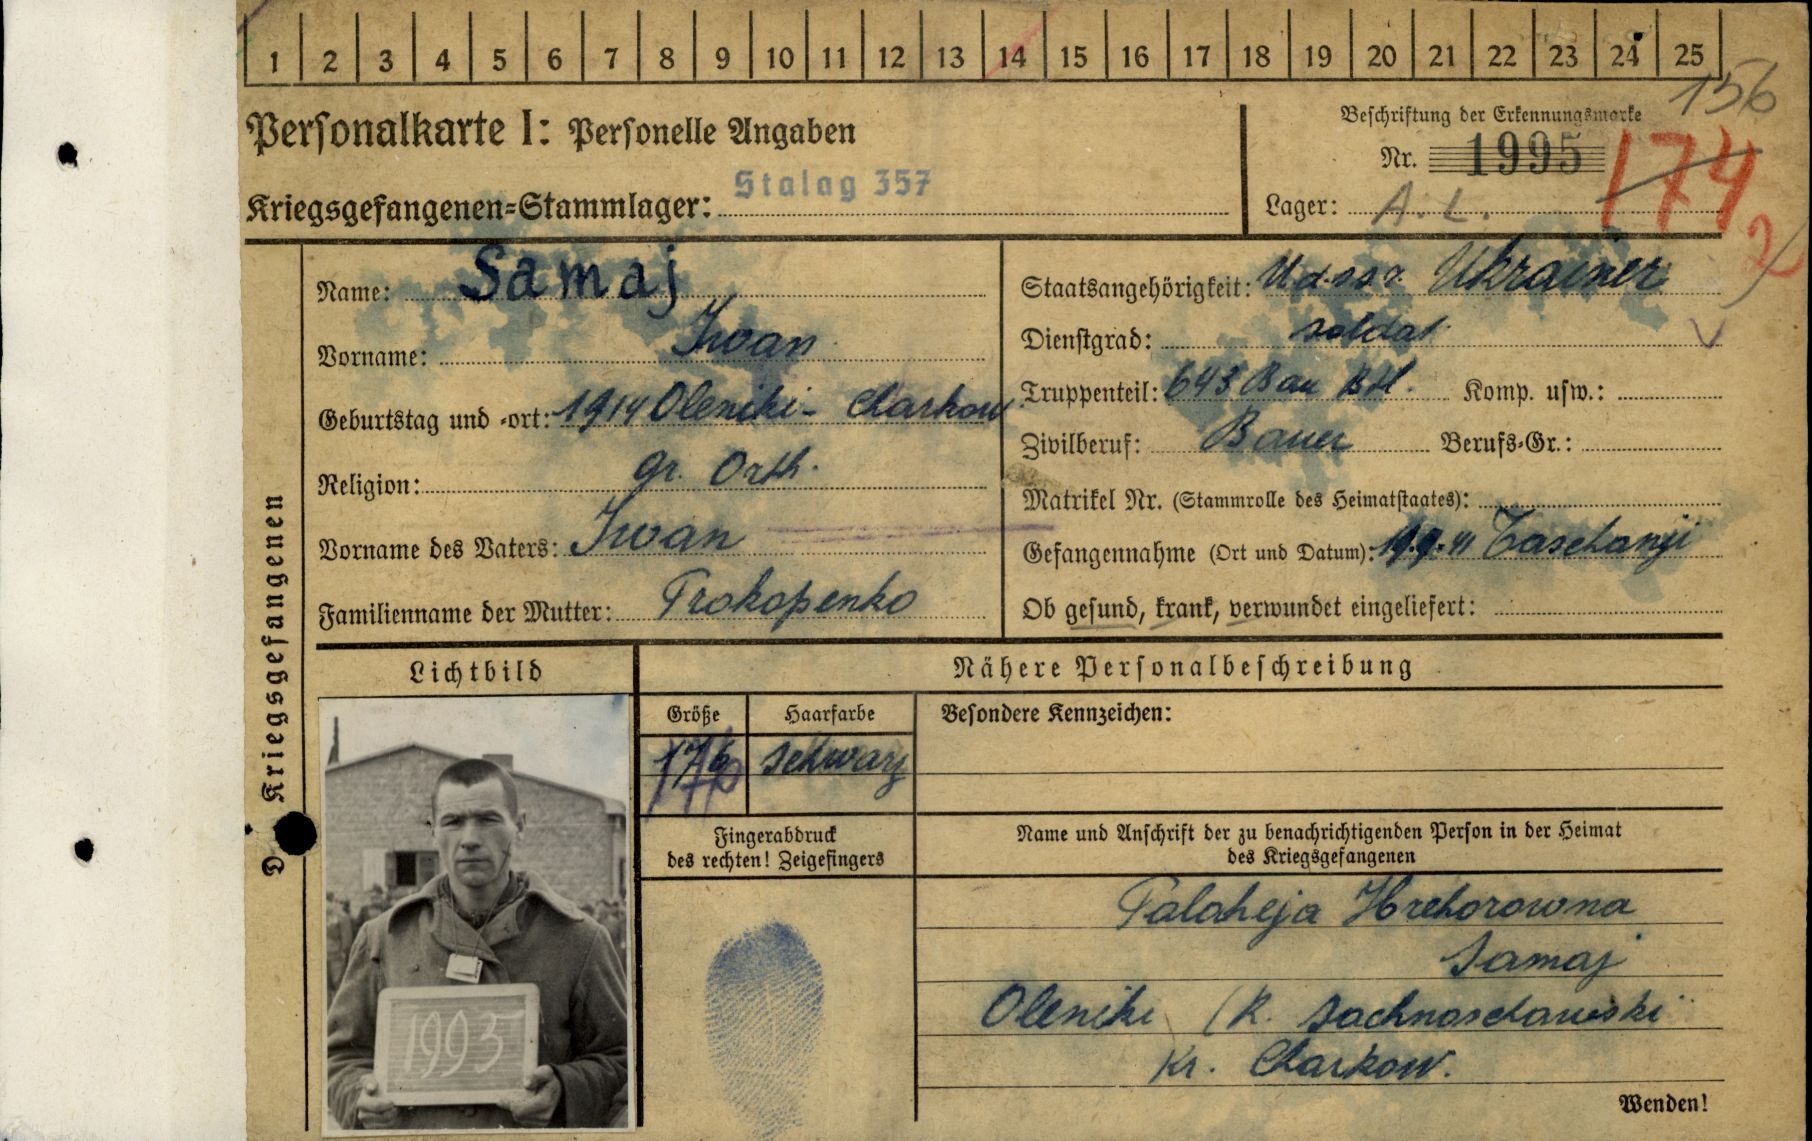 1 2 3 4 5 6 7 8 9 10 11 12 13 14 15 16 17 18 19 20 21 22 23 24 25
156
Personalkarte I: Personelle Angaben
Beschriftung der Erkennungsmarke
Nr. 1995
174
Kriegsgefangenen=Stammlager: Stalag 357
Lager: A. L.
2
Des Kriegsgefangenen
Name: Samaj
Vorname: Iwan
Geburtstag und -ort: 1914 Oleniki - Charkow
Religion: gr. Orth.
Vorname des Vaters: Iwan
Familienname der Mutter: Prokopenko
Staatsangehörigkeit: U.d.s.s.r. Ukrainer
Dienstgrad: soldat
Truppenteil: 643 Bau Btl. Komp. usw.:
Zivilberuf: Bauer Berufs=Gr.:
Matrikel Nr. (Stammrolle des Heimatstaates):
Gefangennahme (Ort und Datum): 19.9.41 Taschanji
Ob gesund, krank, verwundet eingeliefert:
Lichtbild
1995
Nähere Personalbeschreibung
Größe Haarfarbe Besondere Kennzeichen:
176 schwarz
Fingerabdruck
des rechten! Zeigefingers
Name und Anschrift der zu benachrichtigenden Person in der Heimat
des Kriegsgefangenen
Palaheja Hrehorowna
Samaj
Oleniki (R. Sachnoschawski
Kr. Charkow.
Wenden!